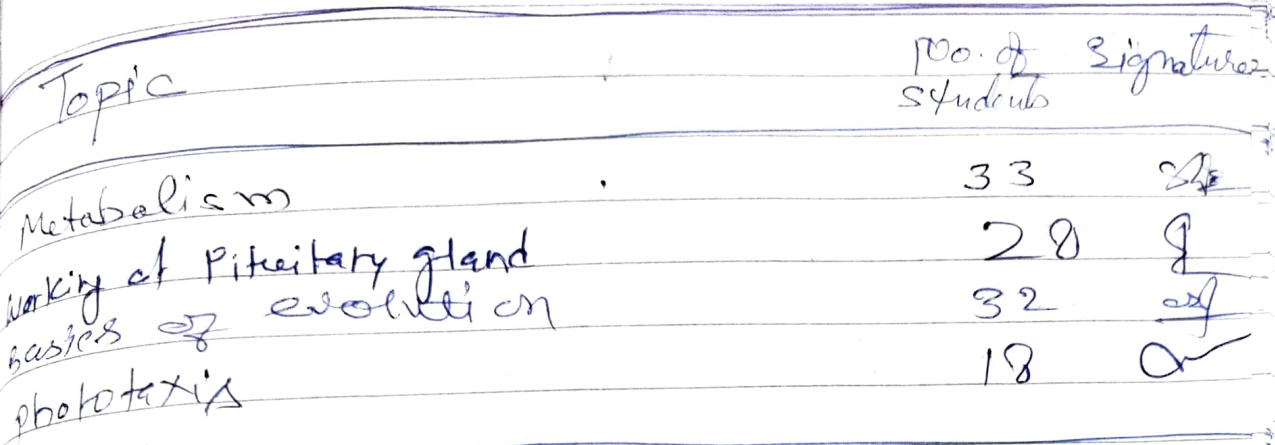 Topic No. of Signatures
students
Metabolism 33
Working of Pituitary gland 28
Basics of evolution 32
phototaxis 18